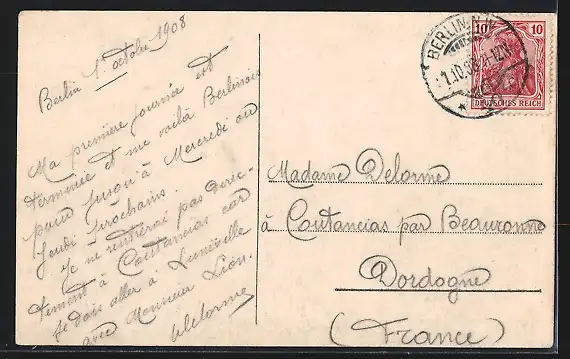 Berlin 1 octobre 1908
Ma première journée est
terminée et me voilà Berlinois
pour jusqu'à Mercredi ou
Jeudi prochains.
Je ne rentrerai pas direc-
tement à Coutancias car
je dois aller à Lunéville
avec Monsieur Lion.
Delorme
BERLIN N.W.
1.10.08
10 10
DEUTSCHES REICH
Madame Delorme
à Coutancias par Beauronne
Dordogne
(France)